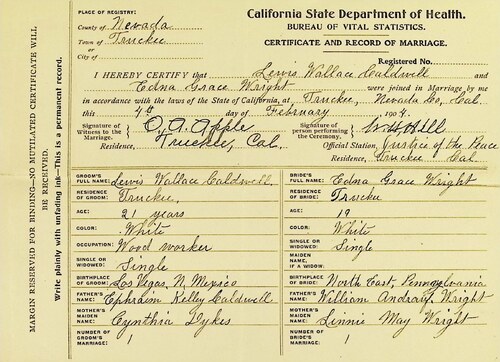 PLACE OF REGISTRY:
County of Nevada
Town of Truckee
or
City of
California State Department of Health.
BUREAU OF VITAL STATISTICS.
CERTIFICATE AND RECORD OF MARRIAGE.
Registered No.
I HEREBY CERTIFY that Lewis Wallace Caldwell and
Edna Grace Wright were joined in Marriage by me
in accordance with the laws of the State of California, at Truckee, Nevada Co, Cal.
this 4th day of February 1904
Signature of Witness to the Marriage, O. A. Apple
Residence, Truckee, Cal.
Signature of person performing the Ceremony, Hill
Official Station, Justice of the Peace
Residence, Truckee Cal.
MARGIN RESERVED FOR BINDING—NO MUTILATED CERTIFICATE WILL
BE RECEIVED.
Write plainly with unfading ink—This is a permanent record.
GROOM'S FULL NAME: Lewis Wallace Caldwell
RESIDENCE OF GROOM: Truckee,
AGE: 21 years
COLOR: White
OCCUPATION: Wood worker
SINGLE OR WIDOWED: Single
BIRTHPLACE OF GROOM: Los Vegas, N, Mexico
FATHER'S NAME: Ephraim Kelley Caldwell
MOTHER'S MAIDEN NAME: Cynthia Dykes
NUMBER OF GROOM'S MARRIAGE: 1
BRIDE'S FULL NAME: Edna Grace Wright
RESIDENCE OF BRIDE: Truckee
AGE: 19
COLOR: White
SINGLE OR WIDOWED: Single
MAIDEN NAME, IF A WIDOW:
BIRTHPLACE OF BRIDE: North East, Pennsylvania
FATHER'S NAME: William Wright
MOTHER'S MAIDEN NAME: Linnie May Wright
NUMBER OF BRIDE'S MARRIAGE: 1